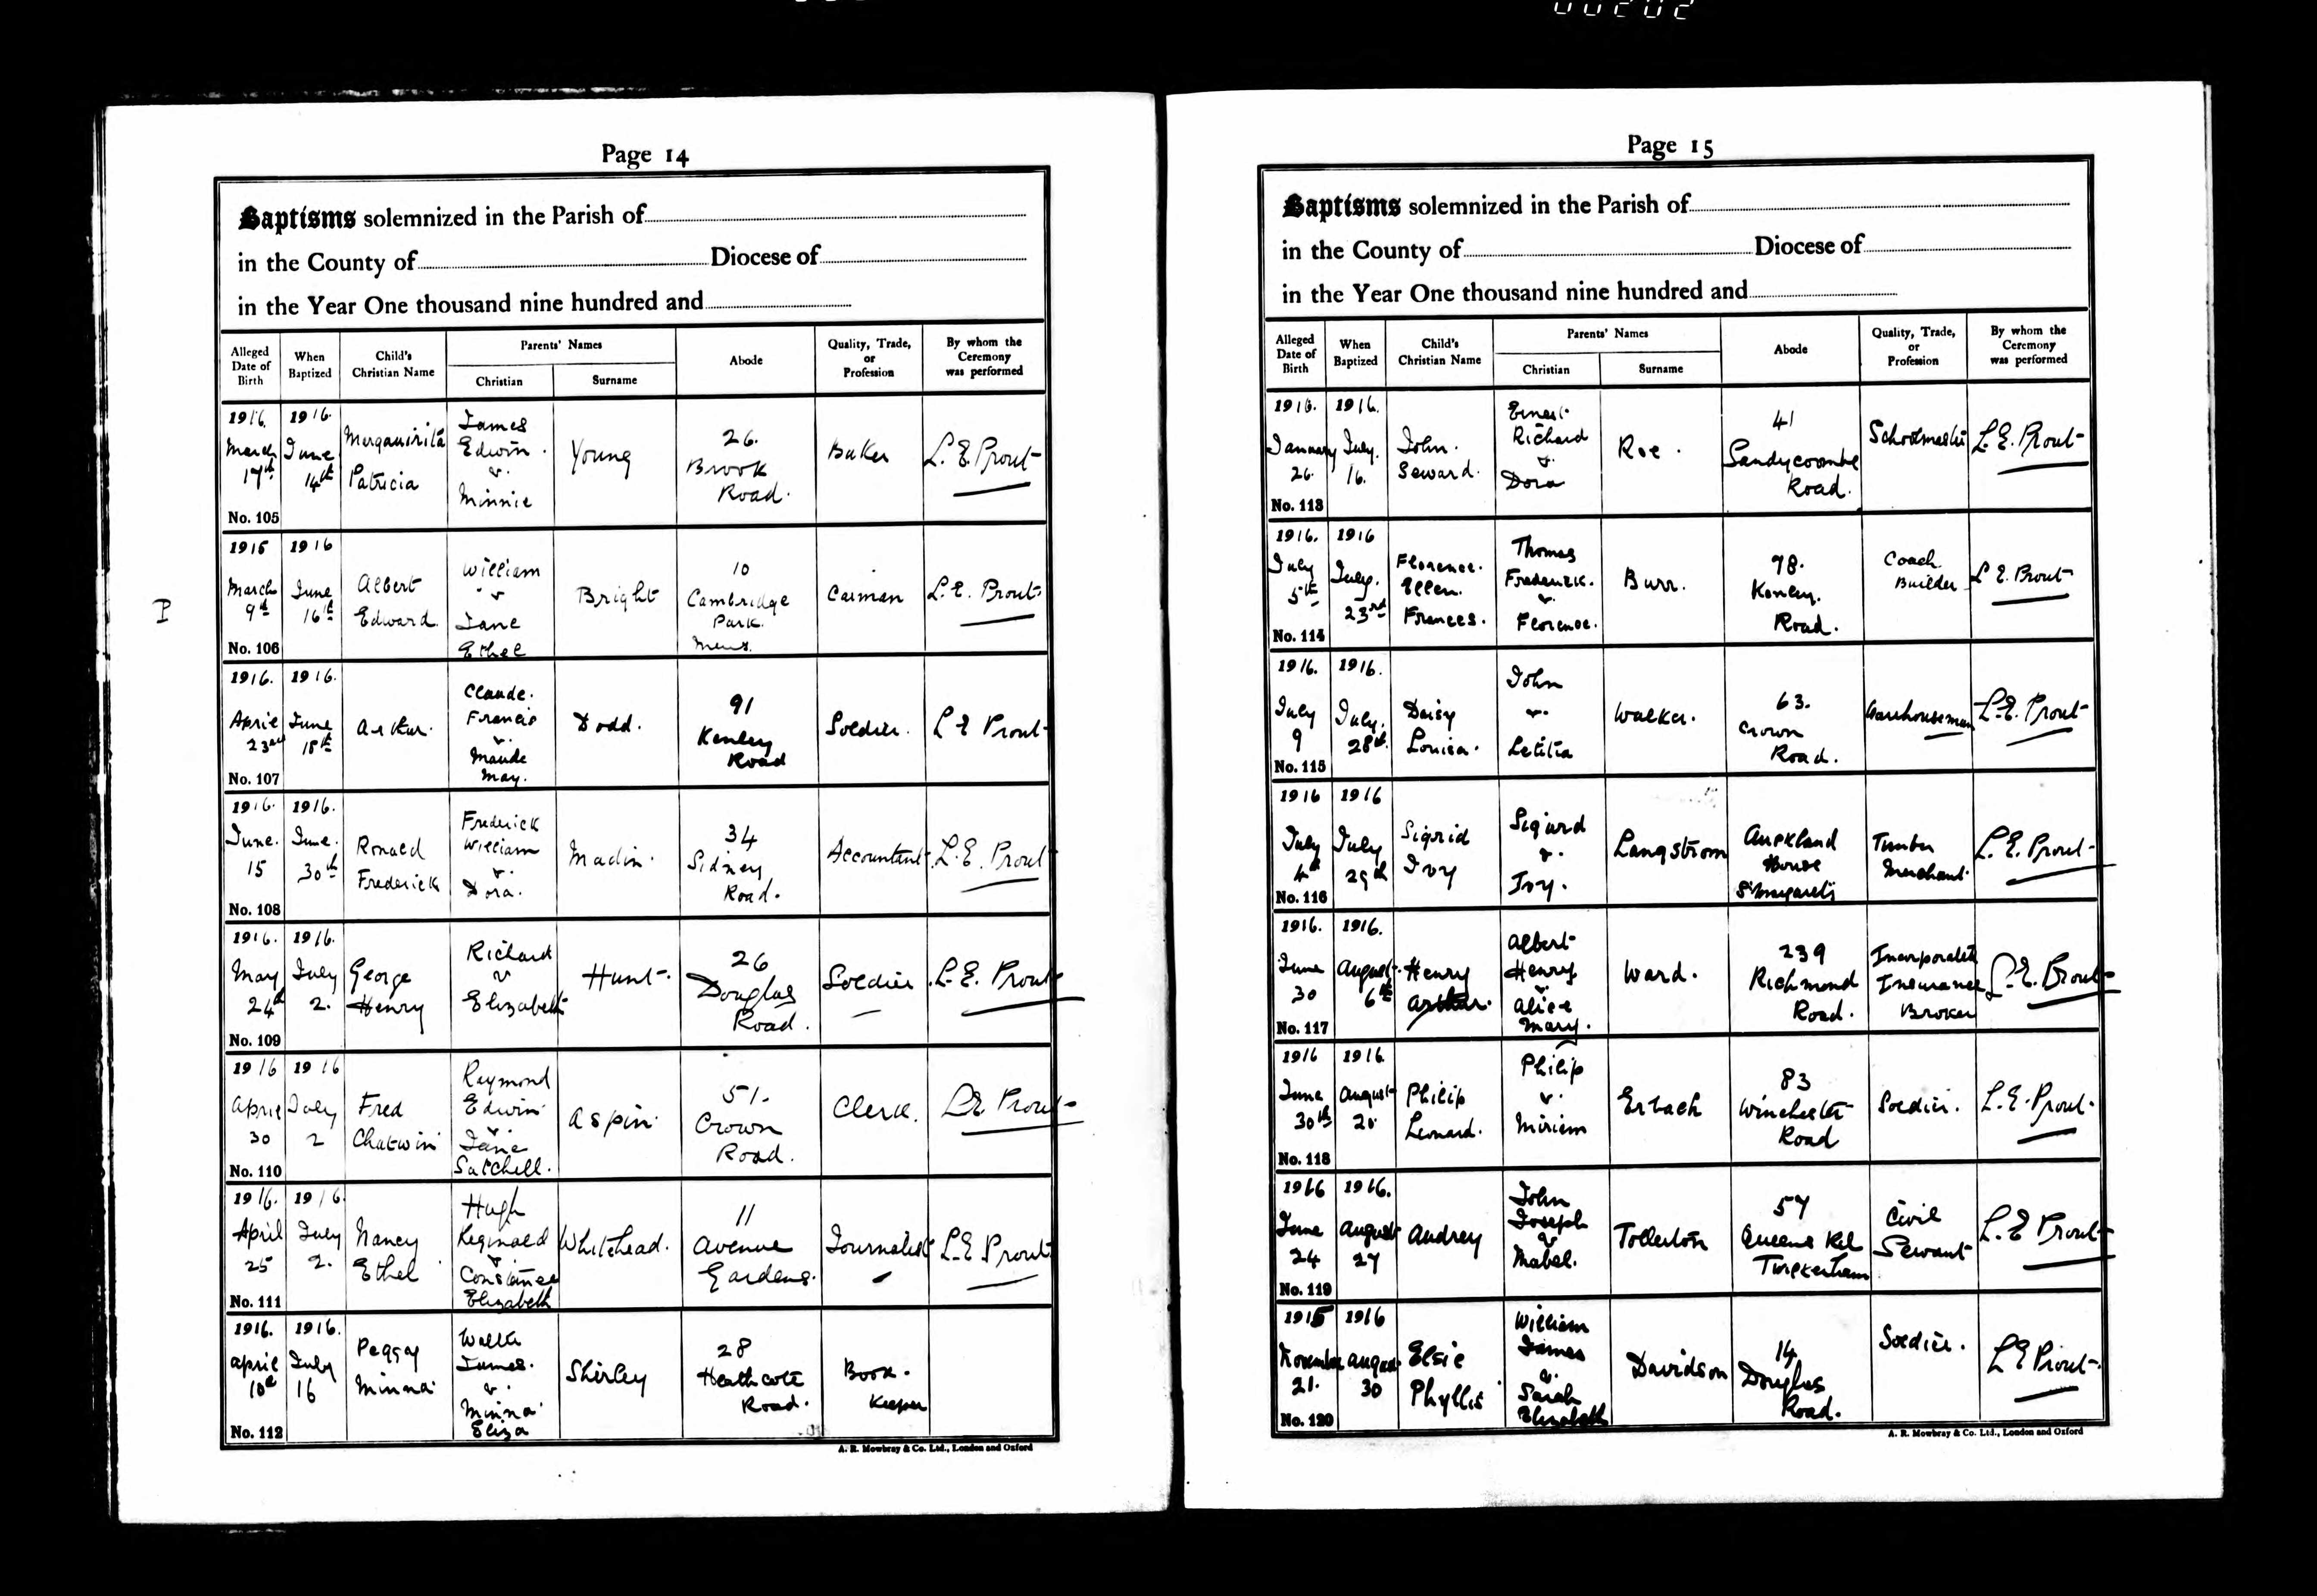 00202
Page 14
Baptisms solemnized in the Parish of
in the County of Diocese of
in the Year One thousand nine hundred and
Alleged Date of Birth
When Baptized
Child's Christian Name
Parents' Names
Christian
Surname
Abode
Quality, Trade, or Profession
By whom the Ceremony was performed
1916. March 17th
1916. June 14th
Patricia
James Edwin & Minnie
Young
26. Brook Road.
Baker
L. E. Prout
No. 105
P
1915 March 9th
1916 June 16th
Albert Edward
William & Jane Ethel
Bright
10 Cambridge Park. Mews.
Carman
L. E. Prout
No. 106
1916. April 23rd
1916. June 18th
Arthur.
Claude. Francis & Maude May.
Dodd.
91 Kenley Road
Soldier.
L E Prout
No. 107
1916. June. 15
1916. June. 30th
Ronald Frederick
Frederick William & Dora.
Madin.
34 Sidney Road.
Accountant
L. E. Prout
No. 108
1916. May 24th
1916. July 2.
George Henry
Richard & Elizabeth
Hunt.
26 Douglas Road.
Soldier
L. E. Prout
No. 109
1916 April 30
1916 July 2
Fred Chatwin
Raymond Edwin & Jane Satchell.
Aspin.
51. Crown Road.
Clerk.
L E Prout
No. 110
1916. April 25
1916. July 2.
Nancy Ethel
Hugh Reginald & Constance Elizabeth
Whitehead.
11 Avenue Gardens.
Journalist
L. E Prout
No. 111
1916. April 10th
1916. July 16
Peggy Minna
Walter James. & Minna Eliza
Shirley
28 Heathcote Road.
Book-Keeper
No. 112
A. R. Mowbray & Co. Ltd., London and Oxford
Page 15
Baptisms solemnized in the Parish of
in the County of Diocese of
in the Year One thousand nine hundred and
Alleged Date of Birth
When Baptized
Child's Christian Name
Parents' Names
Christian
Surname
Abode
Quality, Trade, or Profession
By whom the Ceremony was performed
1916. January 26.
1916. July. 16.
John. Seward.
Ernest Richard & Dora
Roe.
41 Sandycoombe Road.
Schoolmaster
L. E. Prout
No. 113
1916. July 5th
1916 July. 23rd
Florence. Ellen. Frances.
Thomas Frederick. & Florence.
Burr.
98. Kenley. Road.
Coach Builder
L E. Prout
No. 114
1916. July 9
1916. July. 28th
Daisy Louisa.
John & Letitia
Walker.
63. Crown Road.
Warehouseman
L. E. Prout
No. 115
1916 July 4th
1916 July 29th
Sigrid Ivy
Sigurd & Ivy.
Langstrom
Auckland House St Margarets
Timber Merchant
L. E. Prout
No. 116
1916. June 30
1916. August 6th
Henry Arthur.
Albert Henry & Alice Mary.
Ward.
239 Richmond Road.
Incorporated Insurance Broker
L. E. Prout
No. 117
1916 June 30th
1916. August 20
Philip Leonard.
Philip & Miriam
Erbach
83 Winchester Road
Soldier.
L. E. Prout.
No. 118
1916 June 24
1916. August 27
Audrey
John Joseph & Mabel.
Tollerton
57 Queens Rd Twickenham
Civil Servant
L. E Prout
No. 119
1915 November 21.
1916 August 30
Elsie Phyllis
William James & Sarah Elizabeth
Davidson
14 Douglas Road.
Soldier.
L E Prout
No. 120
A. R. Mowbray & Co. Ltd., London and Oxford